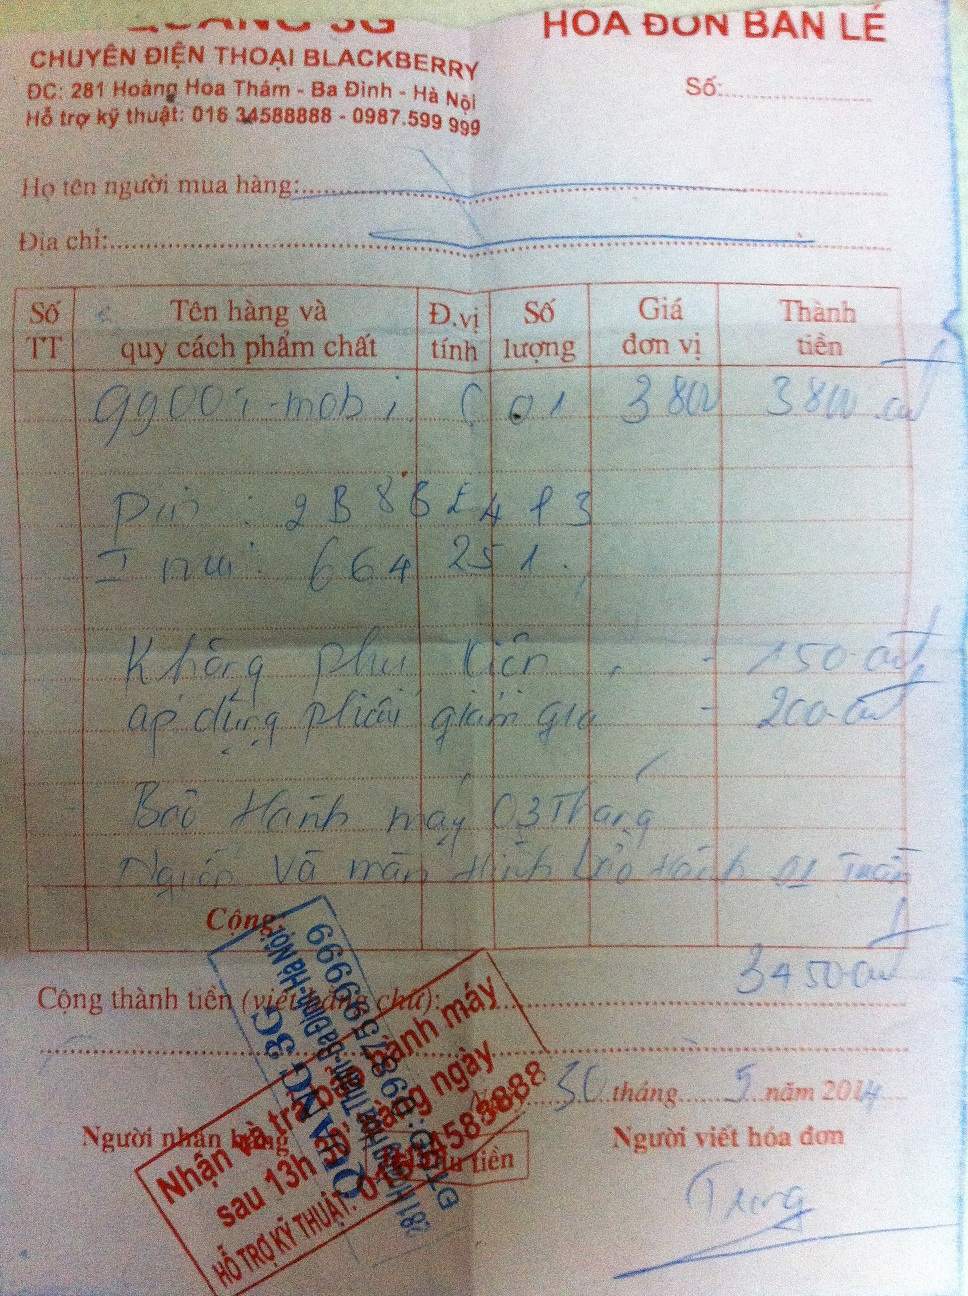 QUANG 3G
HÓA ĐƠN BÁN LẺ
CHUYÊN ĐIỆN THOẠI BLACKBERRY
ĐC: 281 Hoàng Hoa Thám - Ba Đình - Hà Nội
Số:
Hỗ trợ kỹ thuật: 016 34588888 - 0987.599 999
Họ tên người mua hàng:
Địa chỉ:
Số TT Tên hàng và quy cách phẩm chất Đ.vị tính Số lượng Giá đơn vị Thành tiền
9900 T-mobi C 01 3800 3800
Pin : 2B8B
Imei : 664 251.
Không phụ kiện - 150
áp dụng phiếu giảm giá - 200
Bảo Hành máy 03 Tháng
Nguồn và màn Hình Bảo Hành 01 Tuần
Cộng:
3450
Cộng thành tiền (viết bằng chữ):
30 tháng 5 năm 2014
Người nhận hàng
Người viết hóa đơn
Nhận và trả bảo hành máy
sau 13h hàng ngày
HỖ TRỢ KỸ THUẬT: 01634583888
QUANG 3G
281 Hoàng Hoa Thám-Ba Đình-Hà Nội
ĐT: 0987599999
thu tiền
Trung